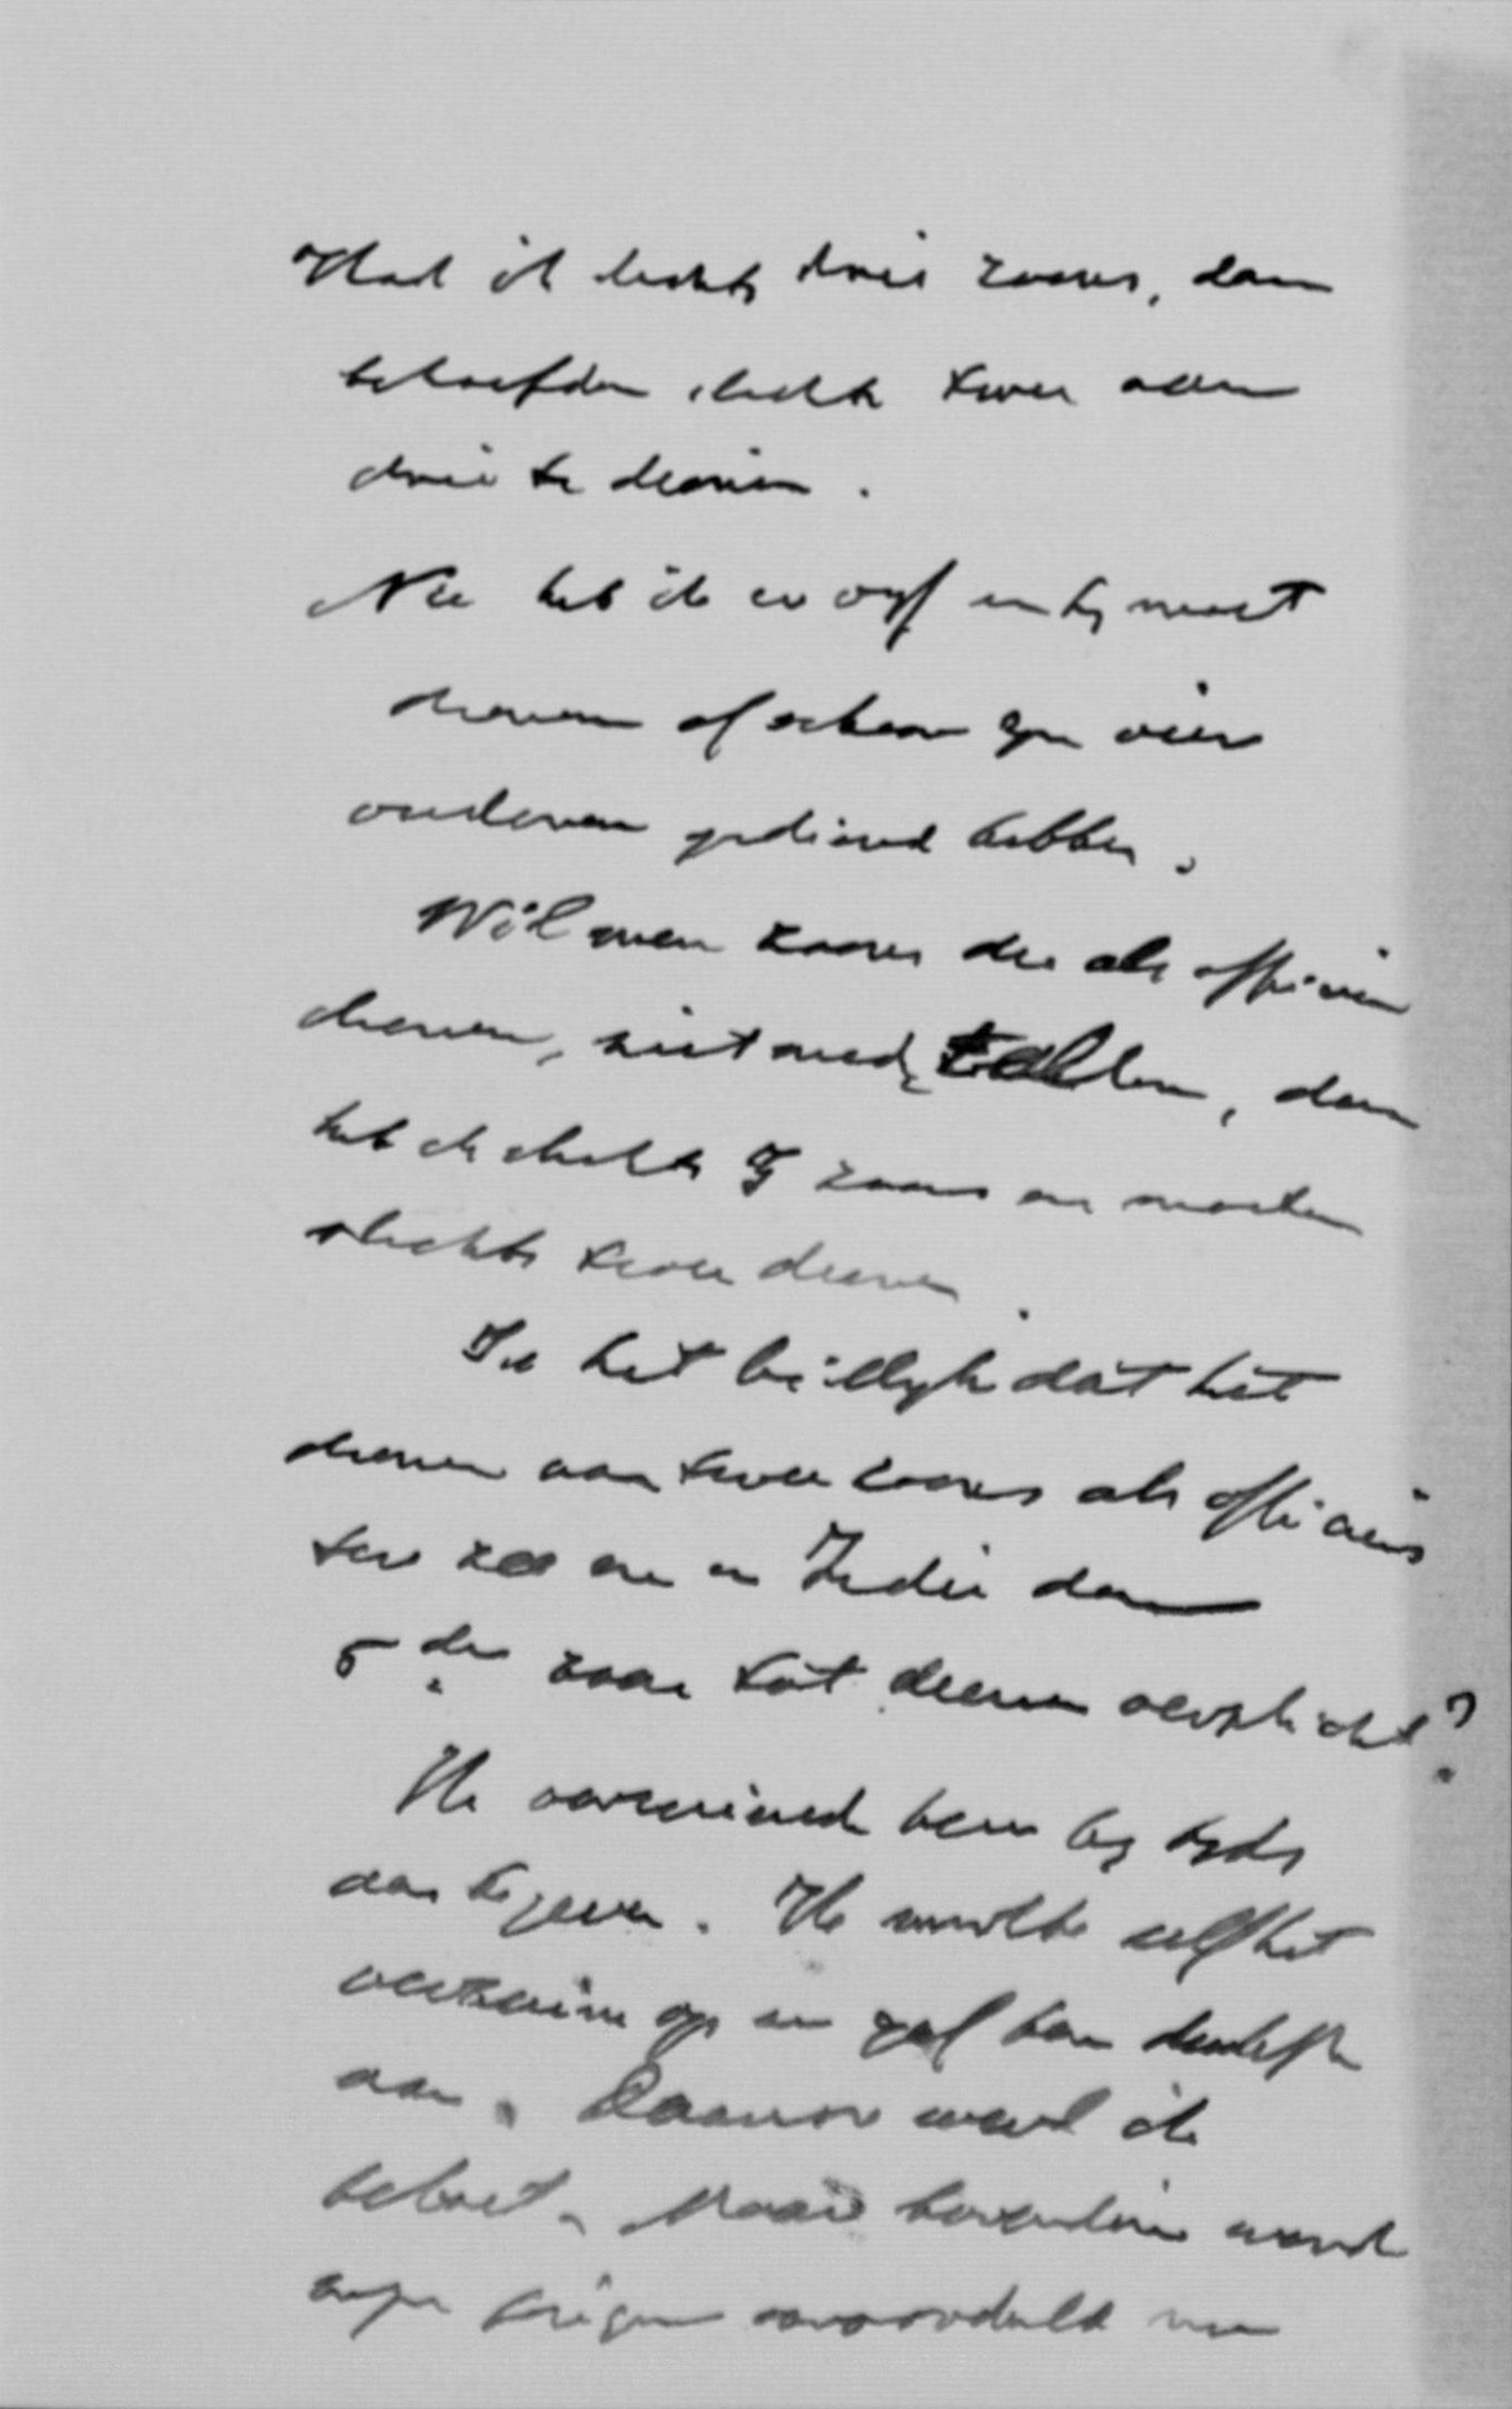 Had ik slechts drie zoons, dan
behoefden slechts twee van
drie te dienen.
Nu heb ik er vijf en hij moet
dienen ofschoon zijn vier
ouderen gediend hebben.
Wil men zoons die als officier
dienen, niet mede tellen, dan
heb ik slechts 3 zoons en moeten
slechts twee dienen.
Is het billijk dat het
dienen van twee zoons als officiers
ter zee en in Indië den
5den zoon tot dienen verplicht?
Ik verzuimde hem bij tijds
aan te geven. Ik merkte zelf het
verzuim op en gaf hem
aan. Daarvoor werd ik
beboet. Maar bovendien werd
mijn jongen veroordeeld